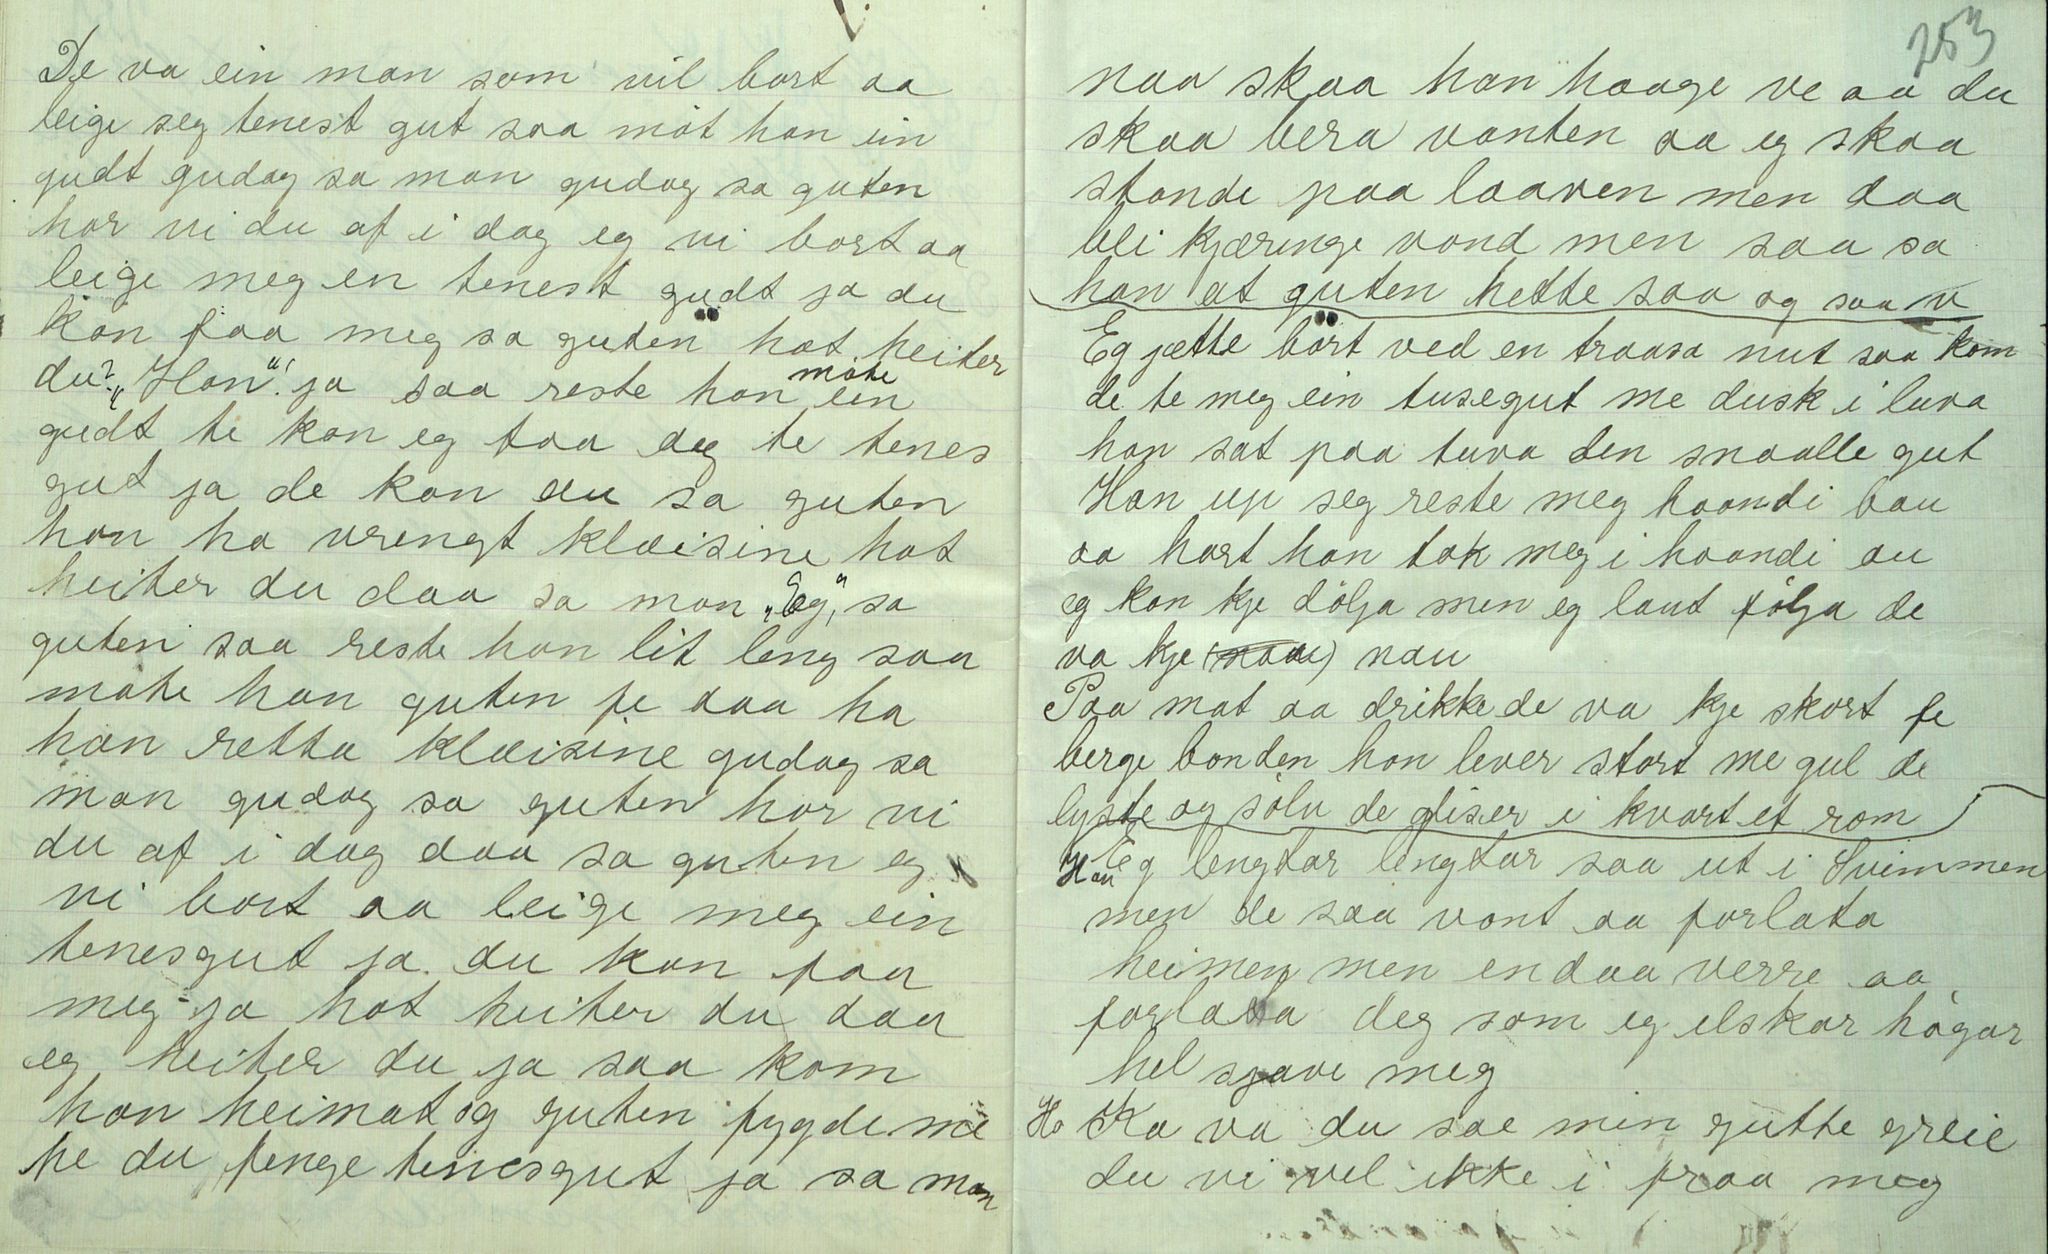 De va ein man som vil bort aa
leige seg tenest gut saa møt han ein
gudt gudag sa man gudag sa guten
hor vi du af i dag eg vi bort aa
leige meg en tenest gudt ja du
kan faa meg sa guten hot heiter
du? "Han" ja saa reste han møte ein
gudt te kan eg taa deg te tenes
gut ja de kan du sa guten
han ha vrengt klæisine hot
heiter du daa sa man "Eg" sa
guten saa reste han lit leng saa
møte han guten fe daa ha
han retta klæisine gudag sa
man gudag sa guten hor vi
du af i dag daa sa guten eg
vi bort aa leige meg ein
tenesgut ja du kan faa
meg ja hot heiter du daa
eg heiter du ja saa kom
han heimat og guten fygde me
he du fenge tenesgut ja sa man
253
naa skaa han haage ve aa du
skaa bera vanten aa eg skaa
stande paa laaven men daa
bli kjæringe vond men saa sa
han at guten hette saa og saa
Eg jætte bört ved en traasa nut saa kom
de te meg ein tusegut me dusk i luva
han sat paa tuva den snaalle gut
Han up seg reste meg haandi bau
aa hart han tok meg i haandi au
eg kan kje dølja men eg laut følja de
va kje nau
Paa mat aa drikke de va kje skort fe
berge bonden han lever stort me gul de
lyste og sølv de gliser i kvart et rom
Han Eg lengtar lengtar saa ut i Svimmen
men de saa vont aa forlata
heimen men endaa verre aa
forlata deg som eg elskar høgar
hel sjave meg
Ho Ka va du sae min gutte greie
du vi vel ikke i fraa meg